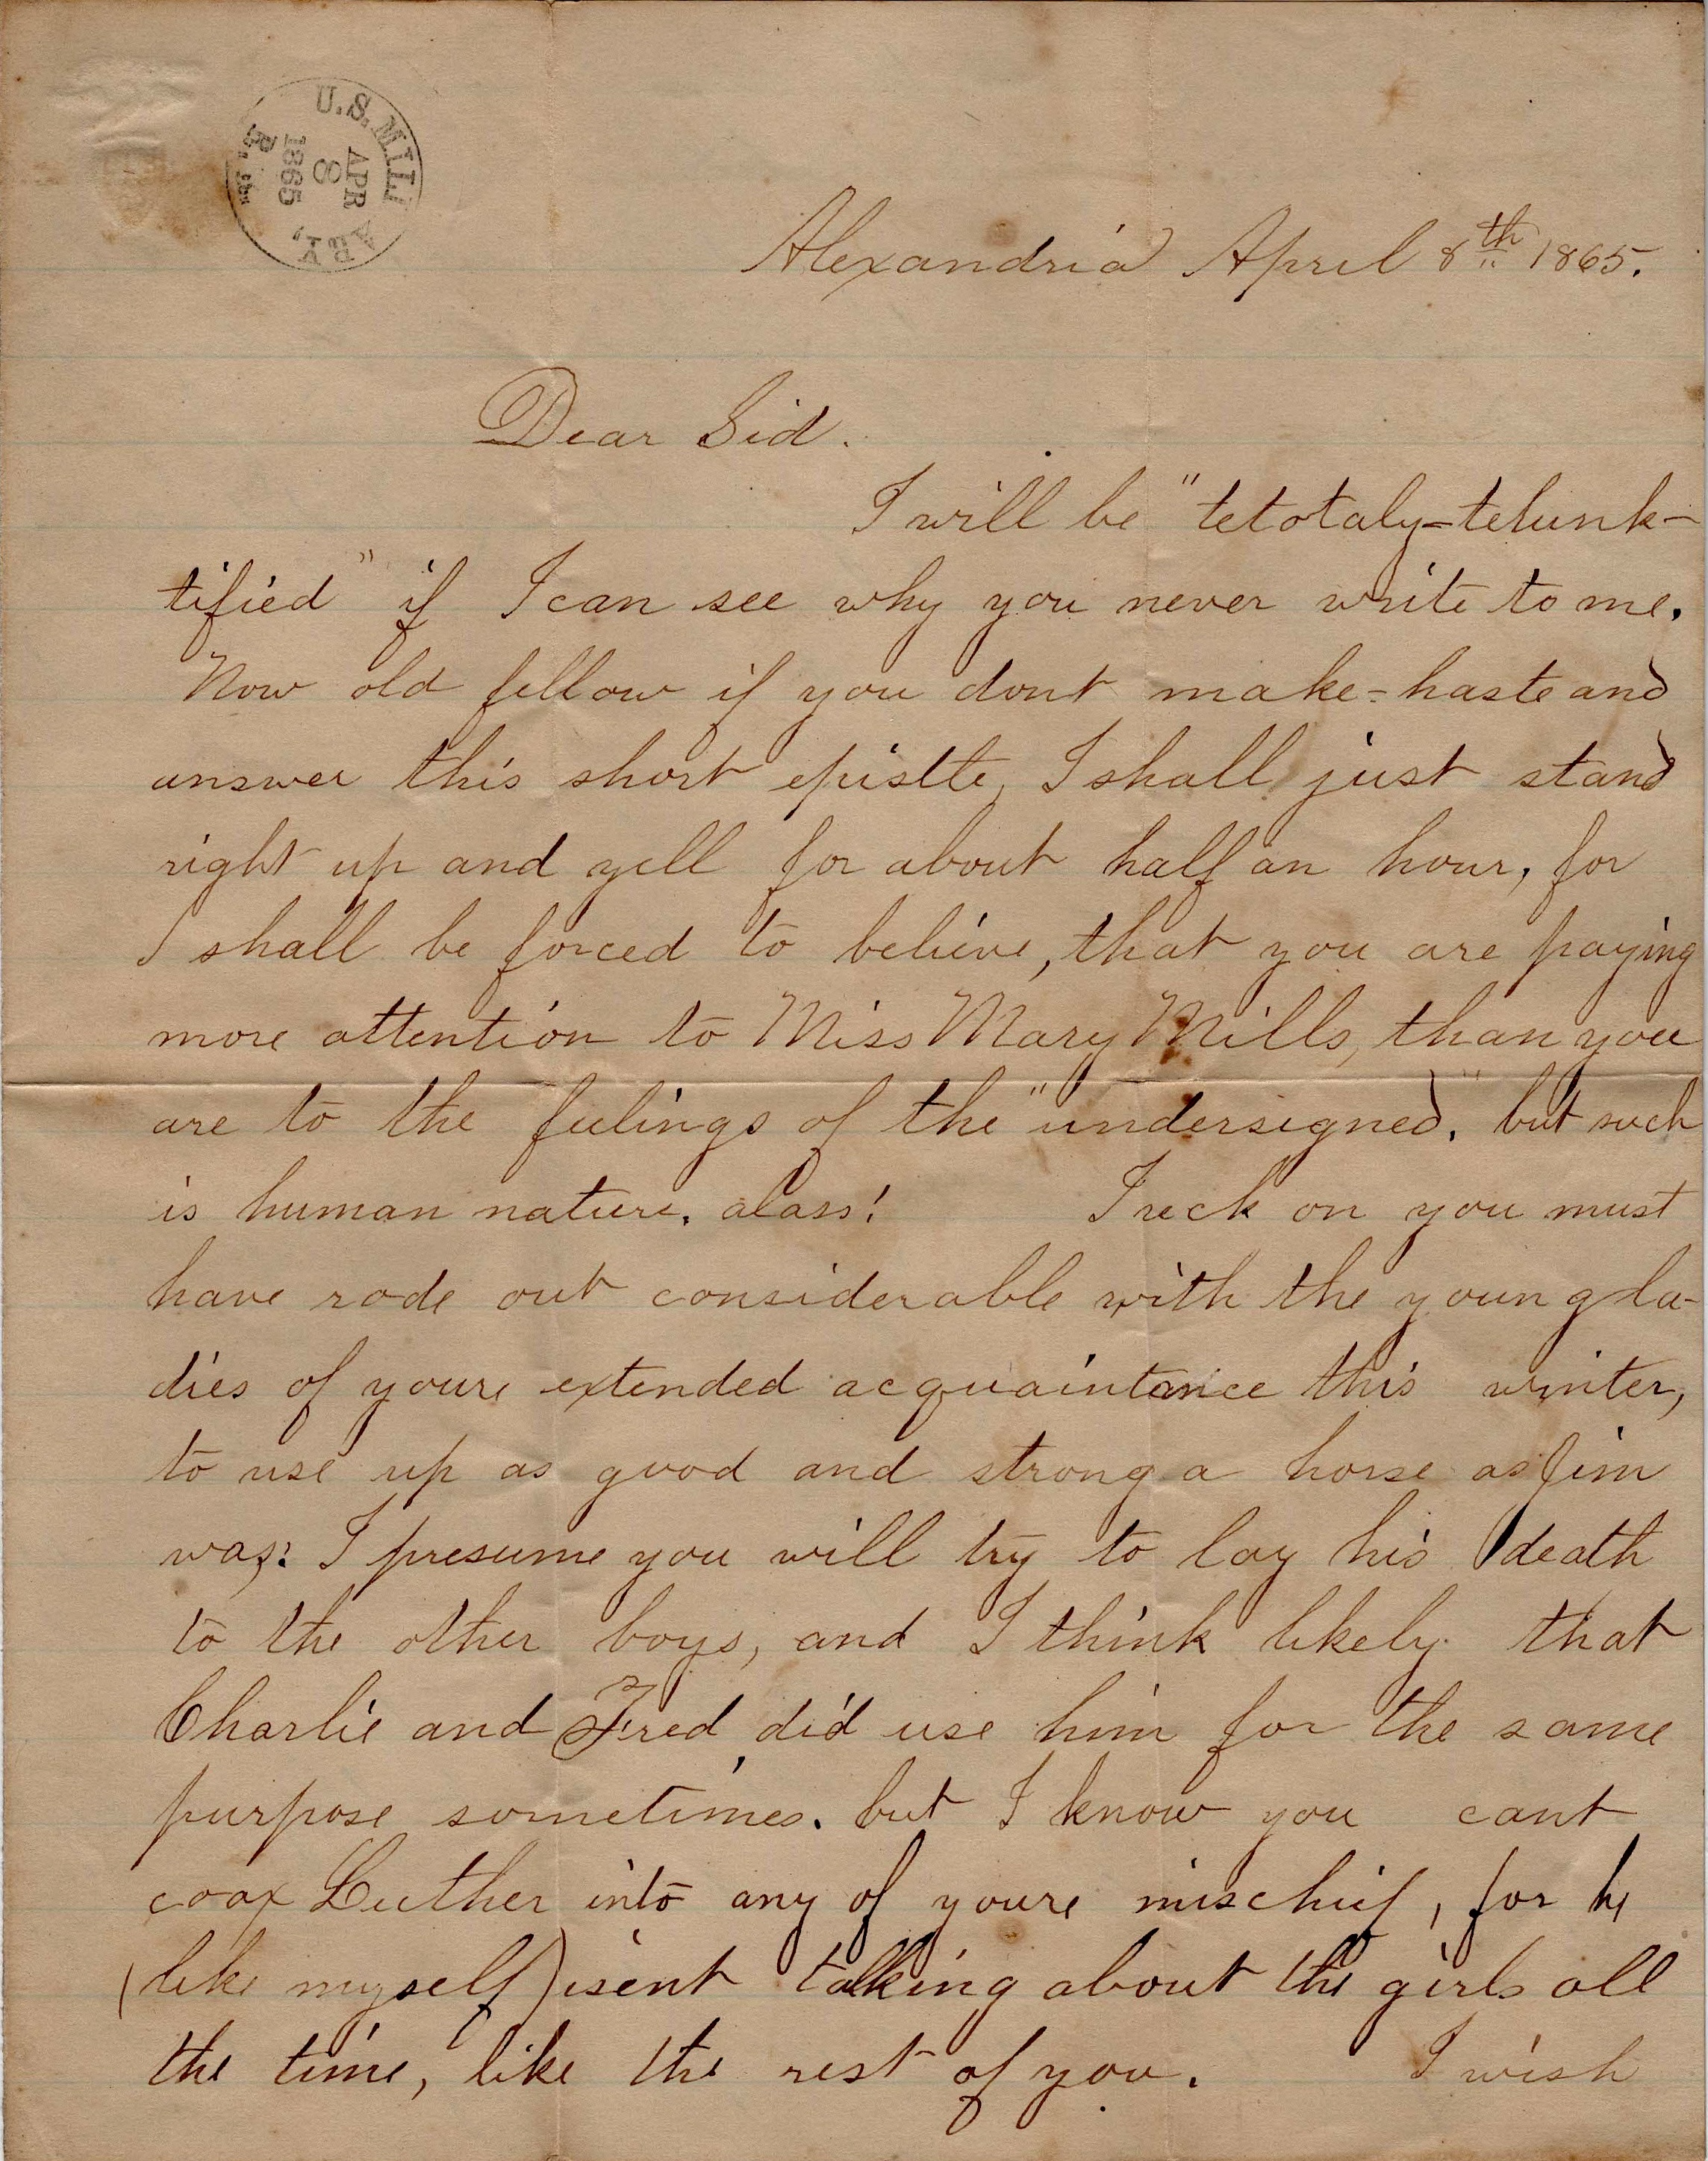 U.S. MILITARY,
APR
8
1865
R. R.
Alexandria April 8th 1865.
Dear Sid.
I will be "tetotaly-telunk-
tified" if I can see why you never write to me.
Now old fellow if you dont make-haste and
answer this short epistte, I shall just stand
right up and yell for about half an hour, for
I shall be forced to believe, that you are paying
more attention to Miss Mary Mills, than you
are to the feelings of the "undersigned." but such
is human nature. alass! I reck on you must
have rode out considerable with the young la-
dies of youre extended acquaintance this winter,
to use up as good and strong a horse as Jim
was: I presume you will try to lay his death
to the other boys, and I think likely that
Charlie and Fred, did use him for the same
purpose sometimes. but I know you cant
coax Luther into any of youre mischief, for he
(like myself) isent talking about the girls all
the time, like the rest of you. I wish